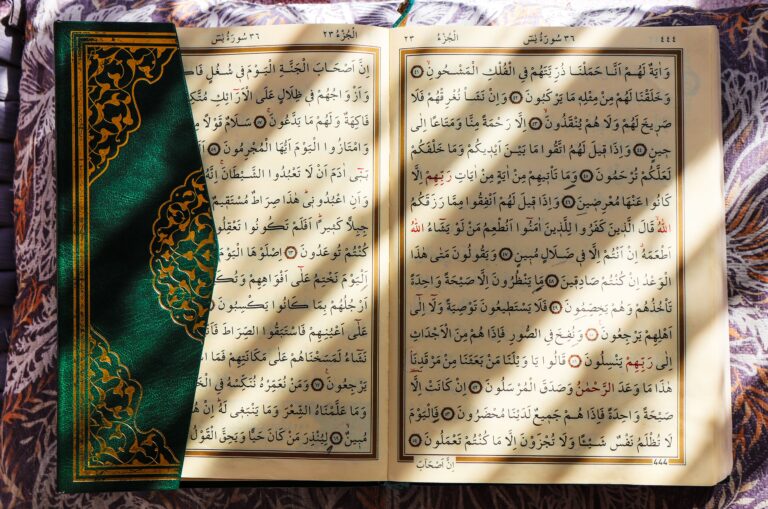 ٤٤٤ ٣٦ سُورَةُ يٰسٓ اَلْجُزْءُ ٢٣
وَاٰيَةٌ لَهُمْ اَنَّا حَمَلْنَا ذُرِّيَّتَهُمْ فِى الْفُلْكِ الْمَشْحُونِۙ ﴿٤١﴾
وَخَلَقْنَا لَهُمْ مِنْ مِثْلِهٖ مَا يَرْكَبُونَ ﴿٤٢﴾ وَاِنْ نَشَأْ نُغْرِقْهُمْ فَلَا
صَرٖيخَ لَهُمْ وَلَا هُمْ يُنْقَذُونَۙ ﴿٤٣﴾ اِلَّا رَحْمَةً مِنَّا وَمَتَاعًا اِلٰى
حٖينٍ ﴿٤٤﴾ وَاِذَا قٖيلَ لَهُمُ اتَّقُوا مَا بَيْنَ اَيْدٖيكُمْ وَمَا خَلْفَكُمْ
لَعَلَّكُمْ تُرْحَمُونَ ﴿٤٥﴾ وَمَا تَاْتٖيهِمْ مِنْ اٰيَةٍ مِنْ اٰيَاتِ رَبِّهِمْ اِلَّا
كَانُوا عَنْهَا مُعْرِضٖينَ ﴿٤٦﴾ وَاِذَا قٖيلَ لَهُمْ اَنْفِقُوا مِمَّا رَزَقَكُمُ
اللّٰهُۙ قَالَ الَّذٖينَ كَفَرُوا لِلَّذٖينَ اٰمَنُٓوا اَنُطْعِمُ مَنْ لَوْ يَشَٓاءُ اللّٰهُ
اَطْعَمَهُۗ اِنْ اَنْتُمْ اِلَّا فٖى ضَلَالٍ مُبٖينٍ ﴿٤٧﴾ وَيَقُولُونَ مَتٰى هٰذَا
الْوَعْدُ اِنْ كُنْتُمْ صَادِقٖينَ ﴿٤٨﴾ مَا يَنْظُرُونَ اِلَّا صَيْحَةً وَاحِدَةً
تَاْخُذُهُمْ وَهُمْ يَخِصِّمُونَ ﴿٤٩﴾ فَلَا يَسْتَطٖيعُونَ تَوْصِيَةً وَلَٓا اِلٰٓى
اَهْلِهِمْ يَرْجِعُونَ ﴿٥٠﴾ وَنُفِخَ فِى الصُّورِ فَاِذَا هُمْ مِنَ الْاَجْدَاثِ
اِلٰى رَبِّهِمْ يَنْسِلُونَ ﴿٥١﴾ قَالُوا يَا وَيْلَنَا مَنْ بَعَثَنَا مِنْ مَرْقَدِنَا
هٰذَا مَا وَعَدَ الرَّحْمٰنُ وَصَدَقَ الْمُرْسَلُونَ ﴿٥٢﴾ اِنْ كَانَتْ اِلَّا
صَيْحَةً وَاحِدَةً فَاِذَا هُمْ جَمٖيعٌ لَدَيْنَا مُحْضَرُونَ ﴿٥٣﴾ فَالْيَوْمَ
لَا تُظْلَمُ نَفْسٌ شَيْـًٔا وَلَا تُجْزَوْنَ اِلَّا مَا كُنْتُمْ تَعْمَلُونَ ﴿٥٤﴾
444
اِنَّ اَصْحَابَ
٣٦ سُورَةُ يٰسٓ اَلْجُزْءُ ٢٣
اِنَّ اَصْحَابَ الْجَنَّةِ الْيَوْمَ فٖى شُغُلٍ
وَاَزْوَاجُهُمْ فٖى ظِلَالٍ عَلَى الْاَرَٓائِكِ
فَاكِهَةٌ وَلَهُمْ مَا يَدَّعُونَ ﴿٥٧﴾ سَلَامٌ قَوْلًا
وَامْتَازُوا الْيَوْمَ اَيُّهَا الْمُجْرِمُونَ ﴿٥٩﴾
بَنٖٓى اٰدَمَ اَنْ لَا تَعْبُدُوا الشَّيْطَانَۚ
وَاَنِ اعْبُدُونٖى هٰذَا صِرَاطٌ مُسْتَقٖيمٌ
جِبِلًّا كَثٖيرًا اَفَلَمْ تَكُونُوا
كُنْتُمْ تُوعَدُونَ ﴿٦٣﴾ اِصْلَوْهَا الْيَوْمَ
اَلْيَوْمَ نَخْتِمُ عَلٰٓى اَفْوَاهِهِمْ
اَرْجُلُهُمْ بِمَا كَانُوا يَكْسِبُونَ
عَلٰٓى اَعْيُنِهِمْ فَاسْتَبَقُوا الصِّرَاطَ
نَشَٓاءُ لَمَسَخْنَاهُمْ عَلٰى مَكَانَتِهِمْ فَمَا
يَرْجِعُونَ ﴿٦٧﴾ وَمَنْ نُعَمِّرْهُ نُنَكِّسْهُ فِى
وَمَا عَلَّمْنَاهُ الشِّعْرَ وَمَا يَنْبَغٖى لَهُ اِنْ
مُبٖينٌ ﴿٦٩﴾ لِيُنْذِرَ مَنْ كَانَ حَيًّا وَيَحِقَّ الْقَوْلُ